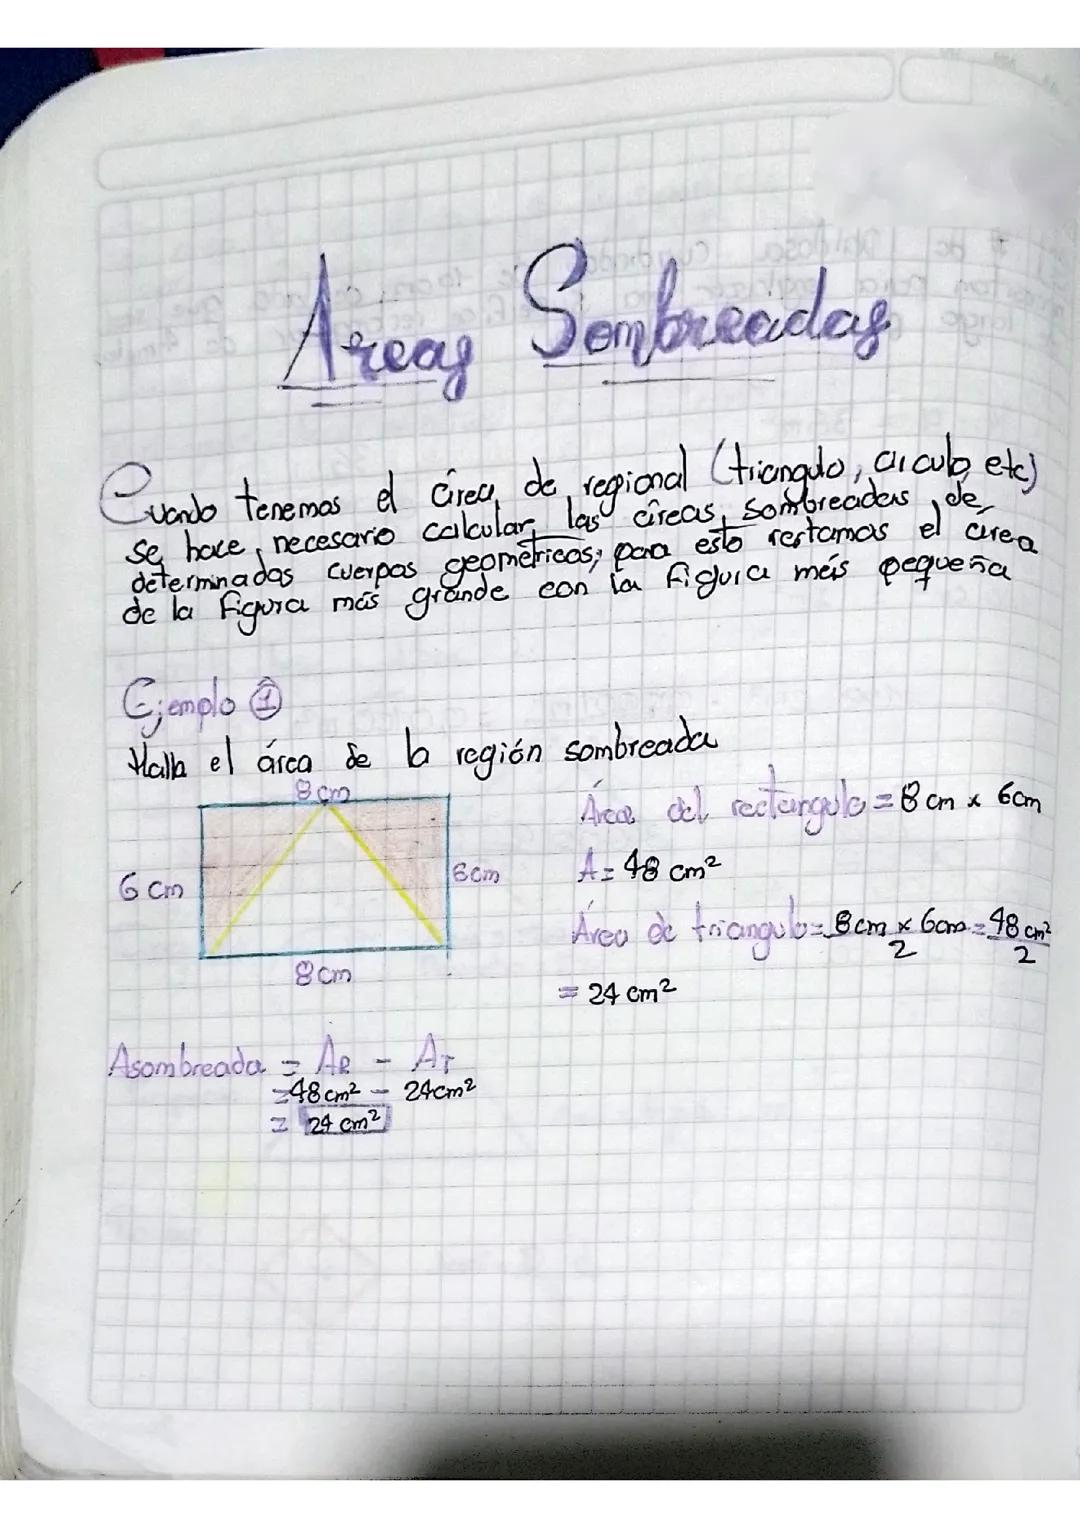 Areas Sombreadas
Cuando tenemos el área de regional (triangulo, circulo, etc)
se hace necesario calcular las áreas sombreadas de
determinadas cuerpos geométricos; para esto restamos el área
de la figura más grande con la figura más pequeña
Ejemplo 1
Halla el área de la región sombreada
8 cm
Área del rectangulo = 8 cm x 6cm
6 cm
6 cm
A = 48 cm²
Área de triangulo = 8cm x 6cm / 2 = 48 cm² / 2
8 cm
= 24 cm²
Asombreada = AR - AT
= 48 cm² - 24cm²
= 24 cm²